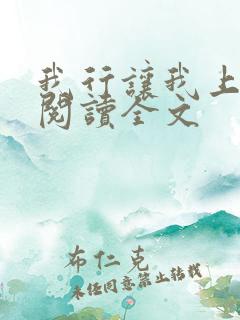 我行讓我上
閱讀全文
布仁克
未经同意禁止转载